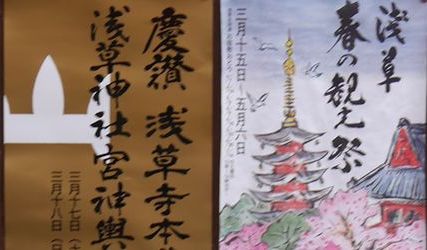 慶讃 浅草寺本
浅草神社宮神輿
三月十七日
三月十八日
浅草
春の観光祭
三月十五日～五月六日